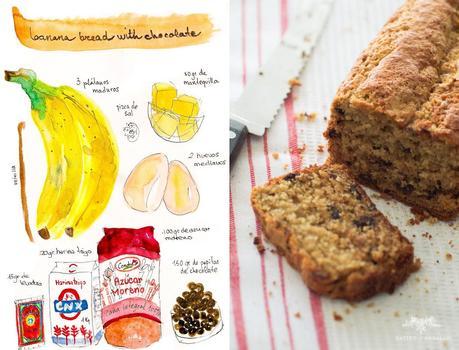 banana bread with chocolate
3 plátanos
maduros
50 gr de
mantequilla
pizca de
sal
vainilla
2 huevos
medianos
100 gr de azúcar
moreno
harina trigo
150 gr de pepitas
de chocolate
15 gr de
Harina trigo
CNX
Azúcar
Moreno